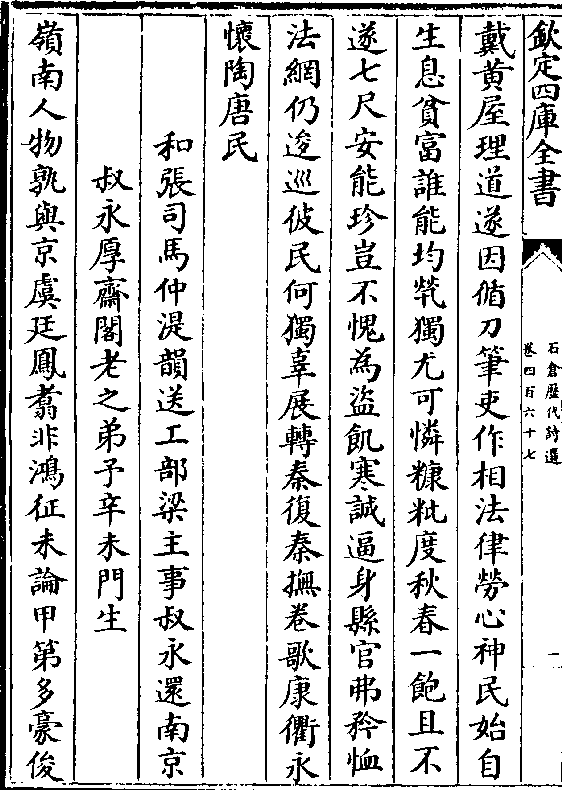 欽定四庫全書
石倉歷代詩選
卷四百六十七
一
戴黄屋理道遂因循刀筆吏作相法律勞心神民始自
生息貧富誰能均煢獨尤可憐糠粃度秋春一飽且不
遂七尺安能珍豈不愧為盜飢寒誠逼身縣官弗矜恤
法網仍逡巡彼民何獨辜展轉秦復秦撫卷歌康衢永
懷陶唐民
和張司馬仲湜韻送工部梁主事叔永還南京
叔永厚齋閣老之弟予辛未門生
嶺南人物孰與京虞廷鳳翥非鴻征未論甲第多豪俊